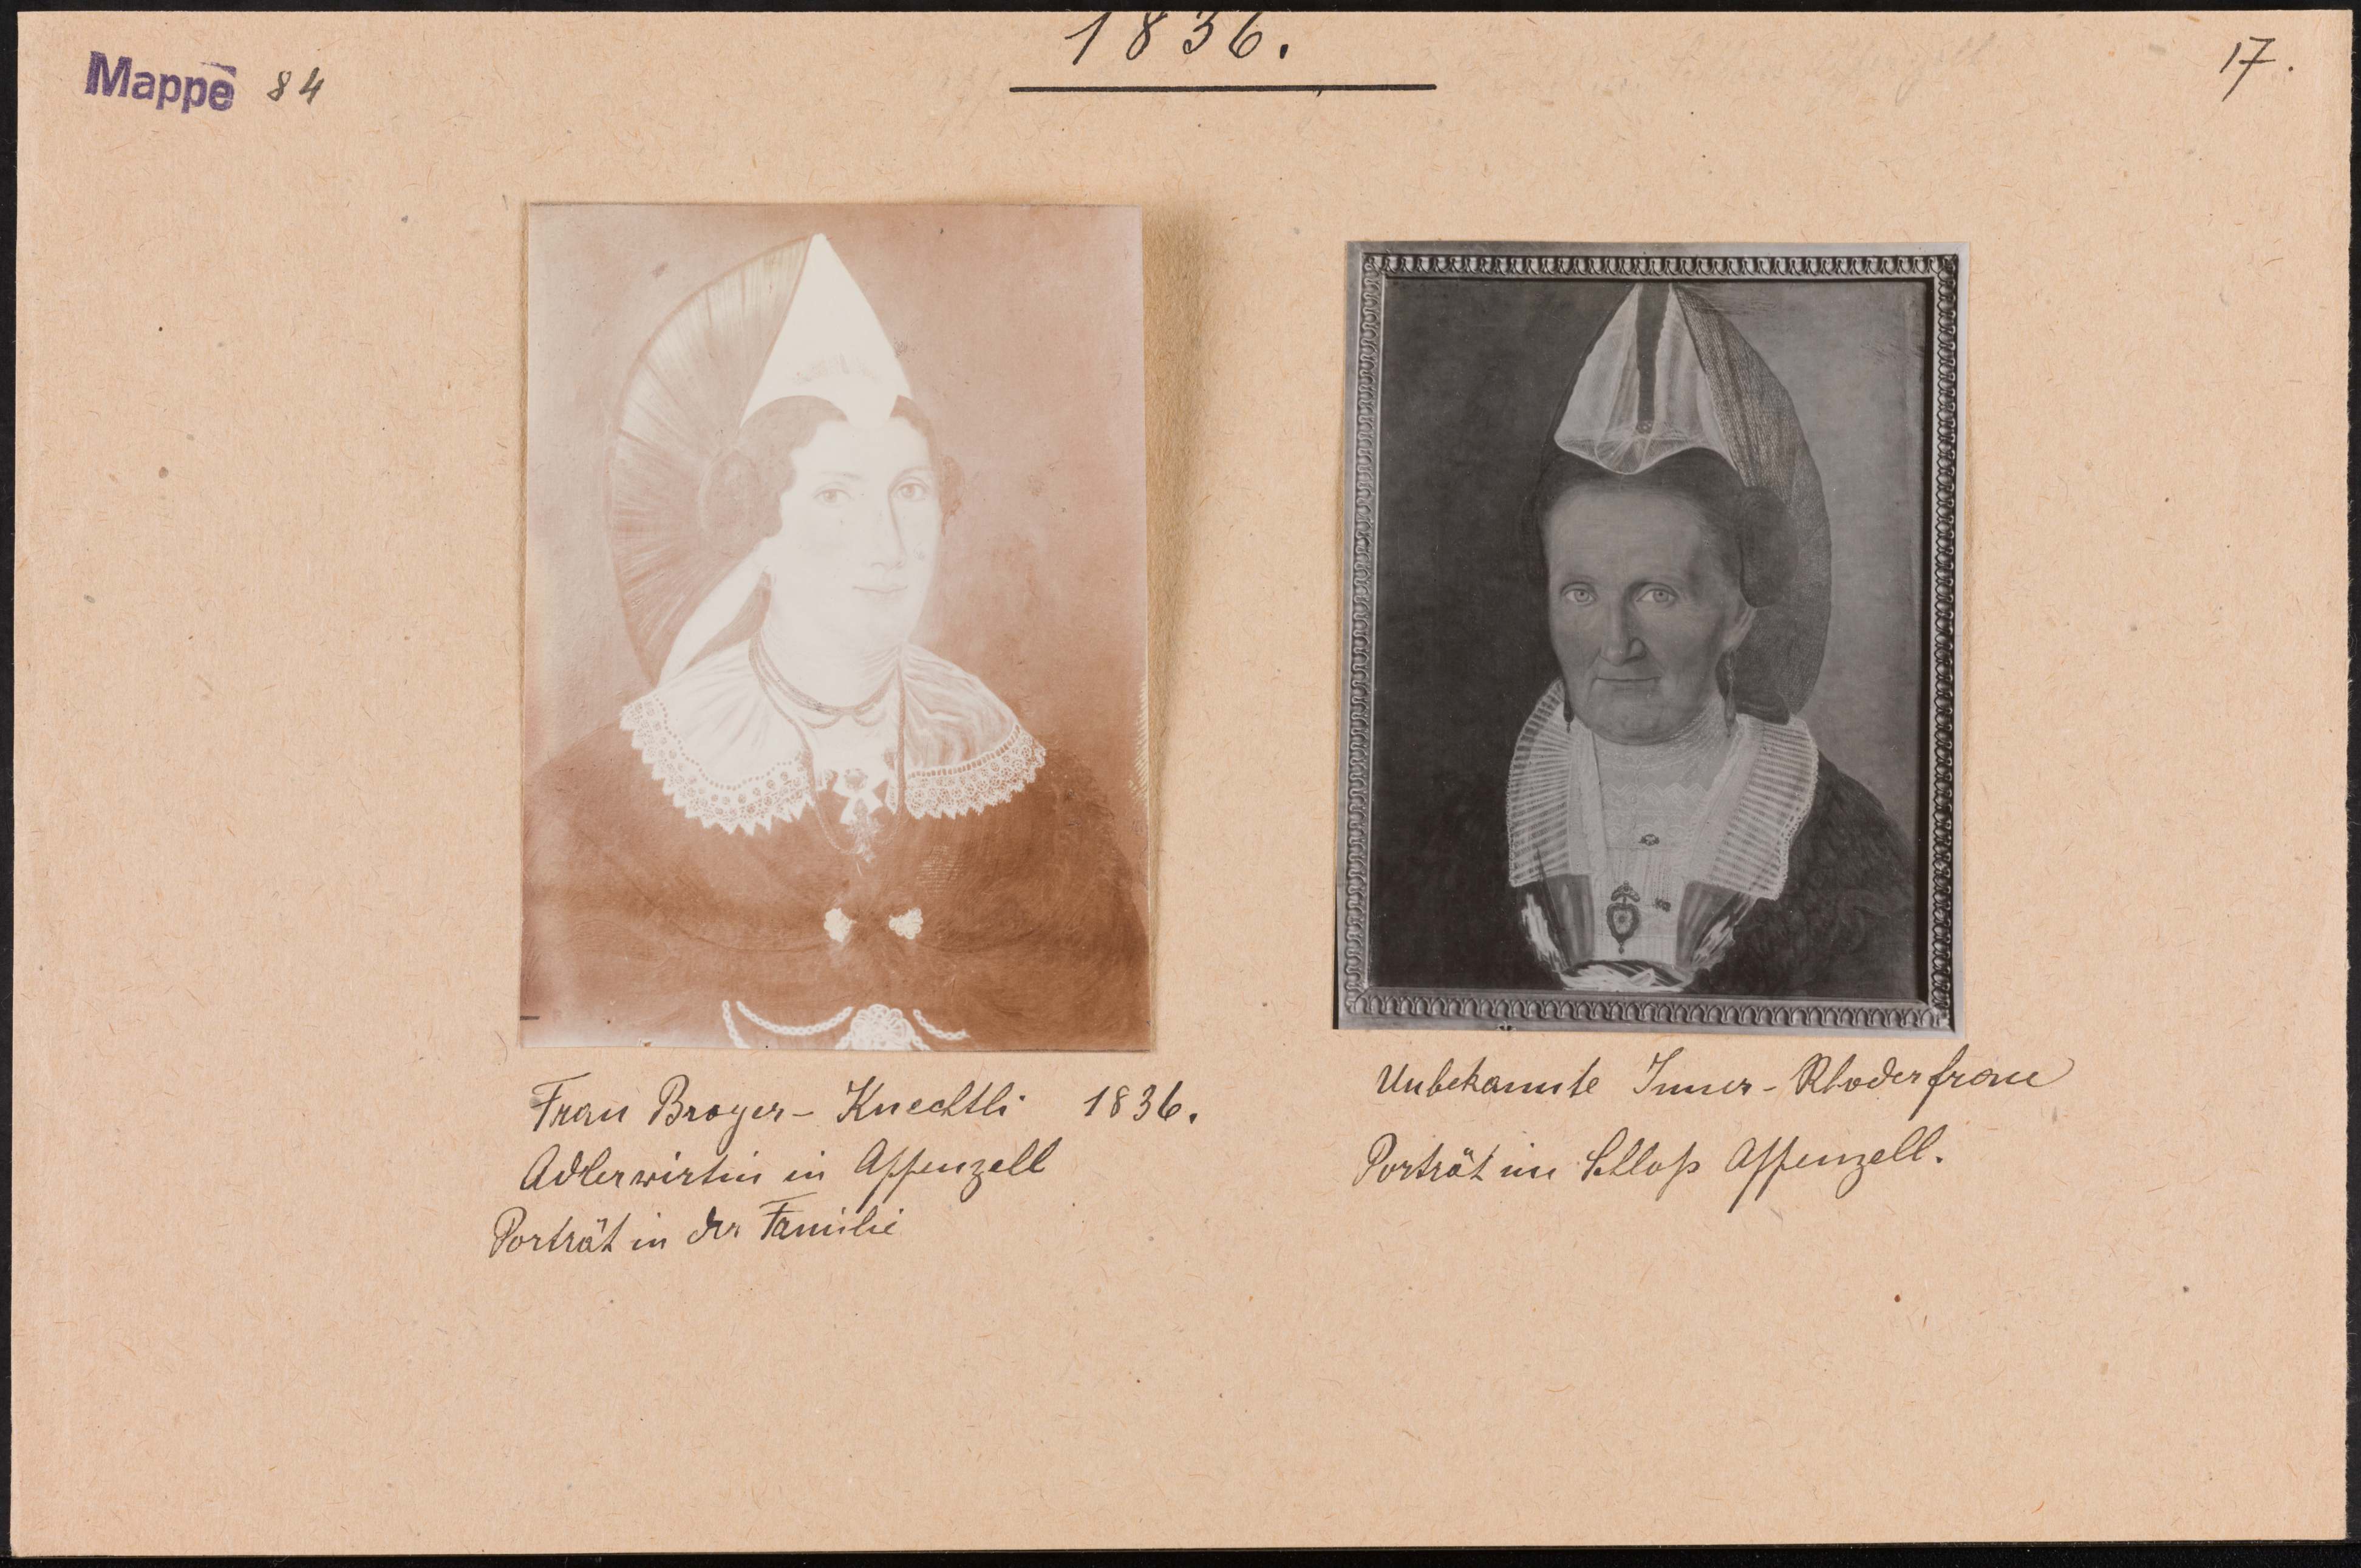 1836.
Mappe 84
17.
Frau Broger-Knechtli 1836.
Adlerwirtin in Appenzell
Porträt in der Familie
Unbekannte Inner-Rhoderfrau
Porträt im Schloß Appenzell.